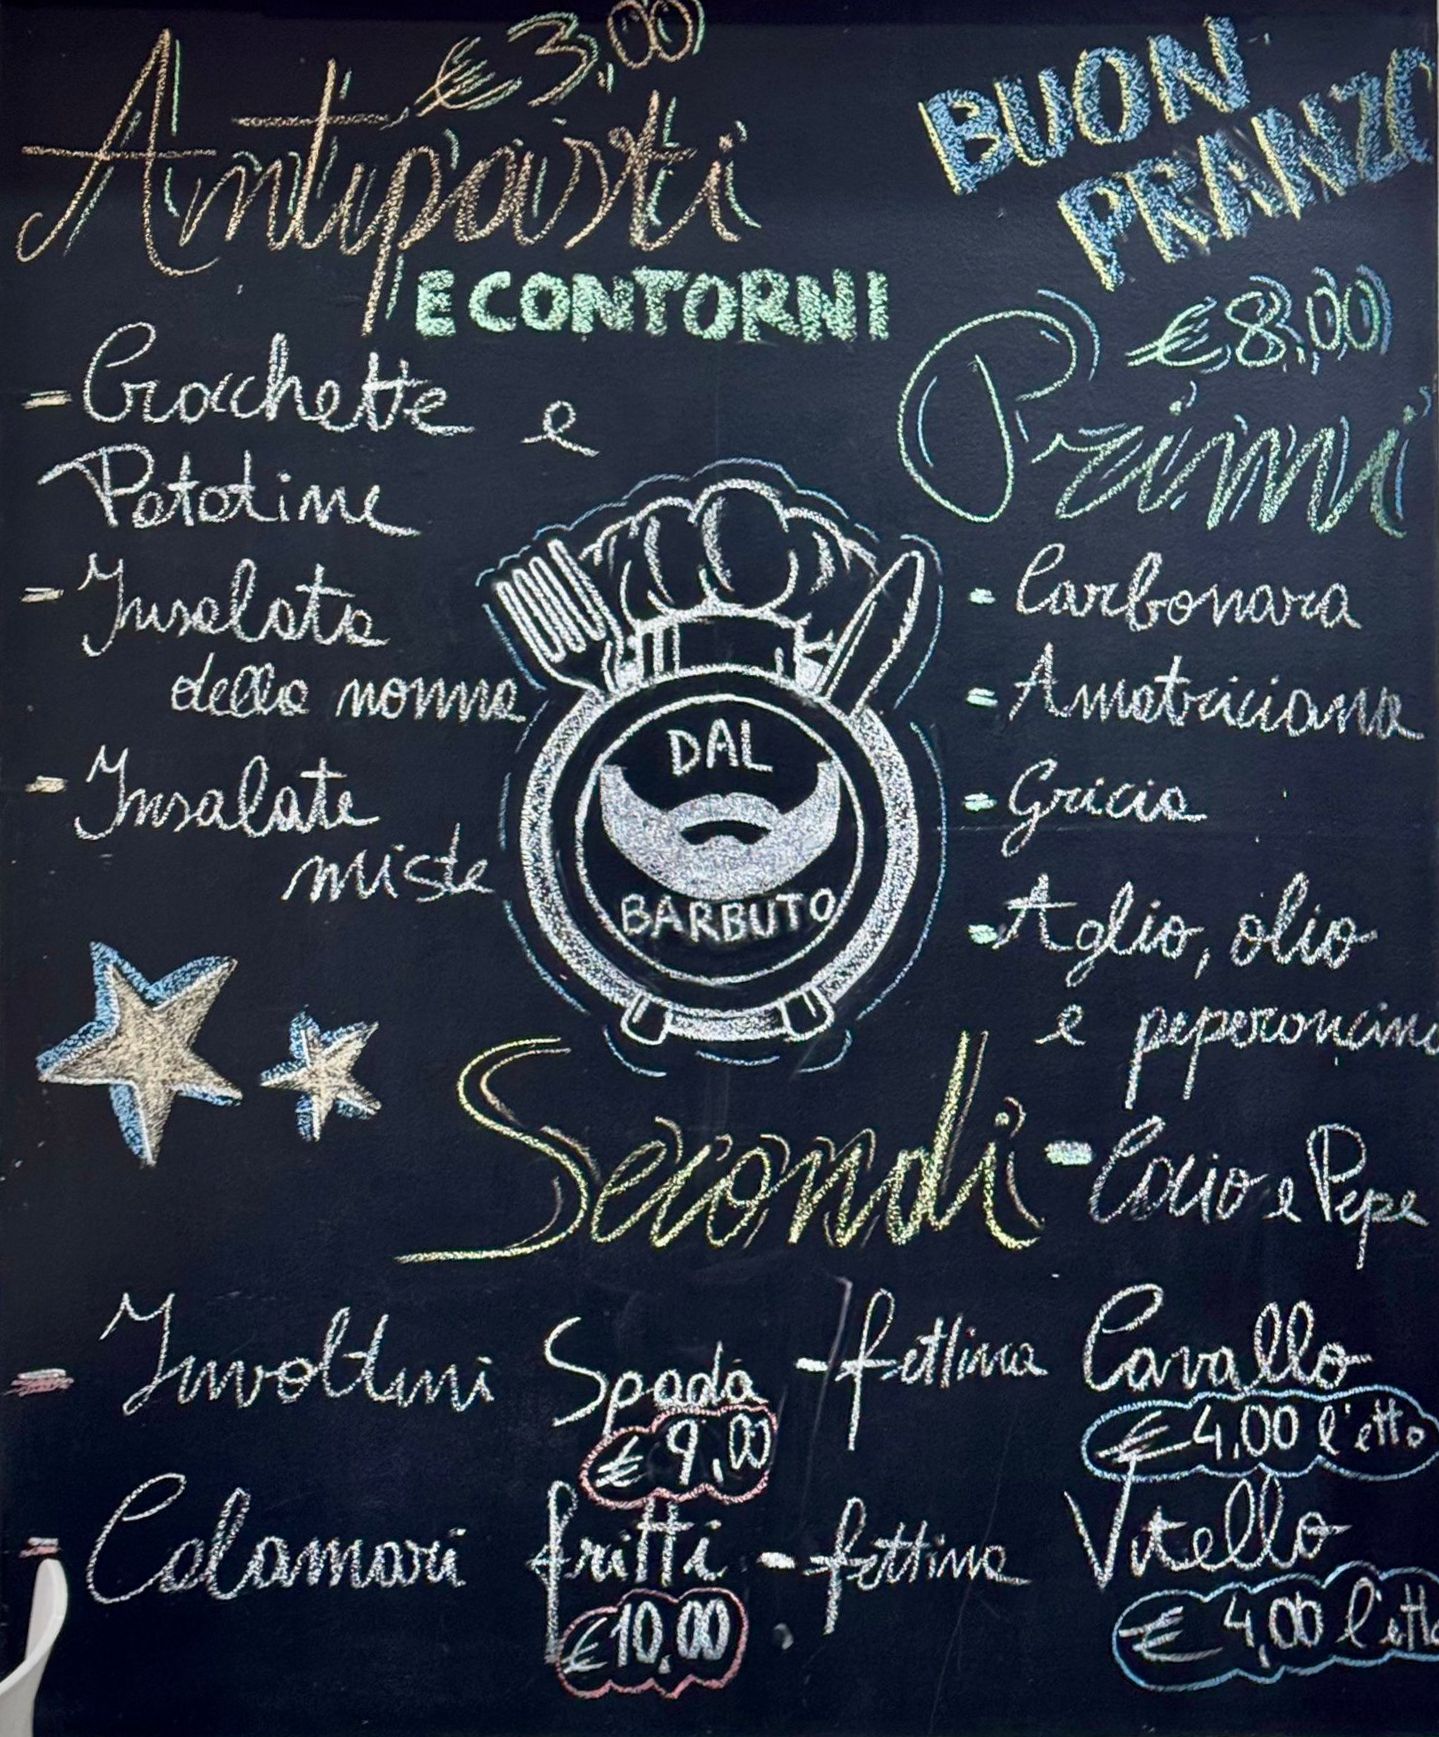 € 3,00
Antipasti
E CONTORNI
- Crocchette e
Patatine
- Insalata
della nonna
- Insalate
miste
BUON
PRANZO
€ 8,00
Primi
- Carbonara
- Amatriciana
- Gricia
- Aglio, olio
e peperoncino
- Cacio e Pepe
DAL
BARBUTO
Secondi
- Involtini Spada
€ 9,00
- Calamari fritti
€ 10,00
- fettina Cavallo
€ 4,00 l'etto
- fettina Vitello
€ 4,00 l'etto